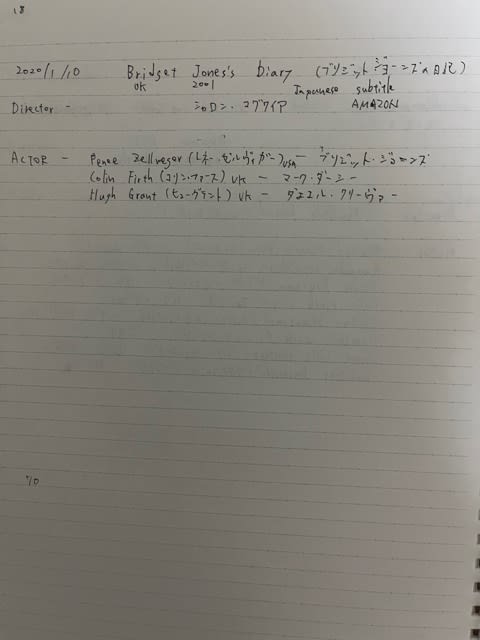 18
2020/1/10 Bridget Jones's Diary (ブリジット・ジョーンズの日記)
UK 2001 Japanese subtitle
Director - シャロン・マグワイア AMAZON
ACTOR - Renee Zellweger (レネー・ゼルヴィガー) USA - ブリジット・ジョーンズ
Colin Firth (コリン・ファース) UK - マーク・ダーシー
Hugh Grant (ヒューグラント) UK - ダニエル・クリーヴァー
10